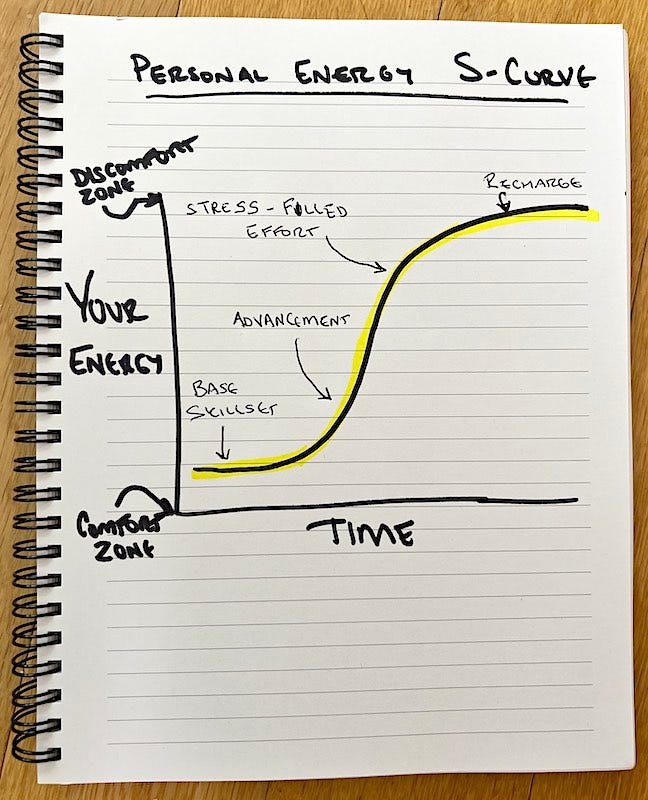 PERSONAL ENERGY S-CURVE
DISCOMFORT
ZONE
RECHARGE
STRESS-FILLED
EFFORT
YOUR
ENERGY
ADVANCEMENT
BASE
SKILLSET
COMFORT
ZONE
TIME